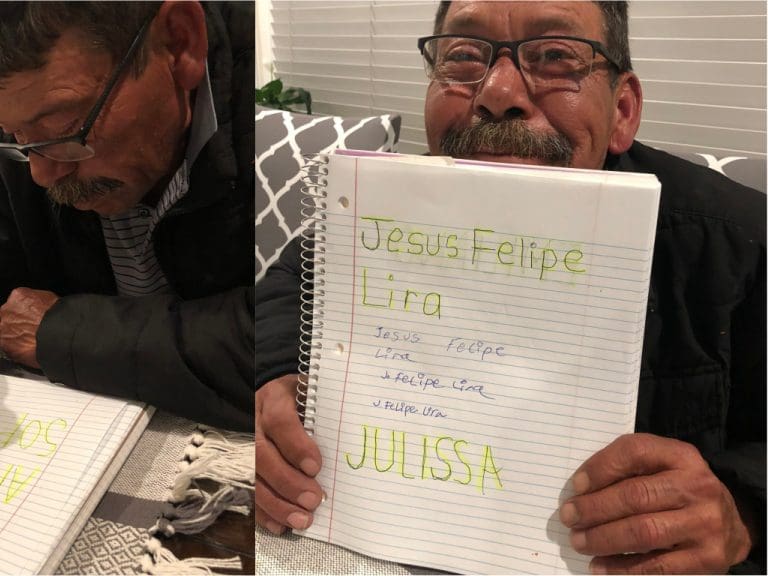 Jesus Felipe
Lira
Jesus Felipe
Lira
J. Felipe Lira
J. Felipe Lira
JULISSA